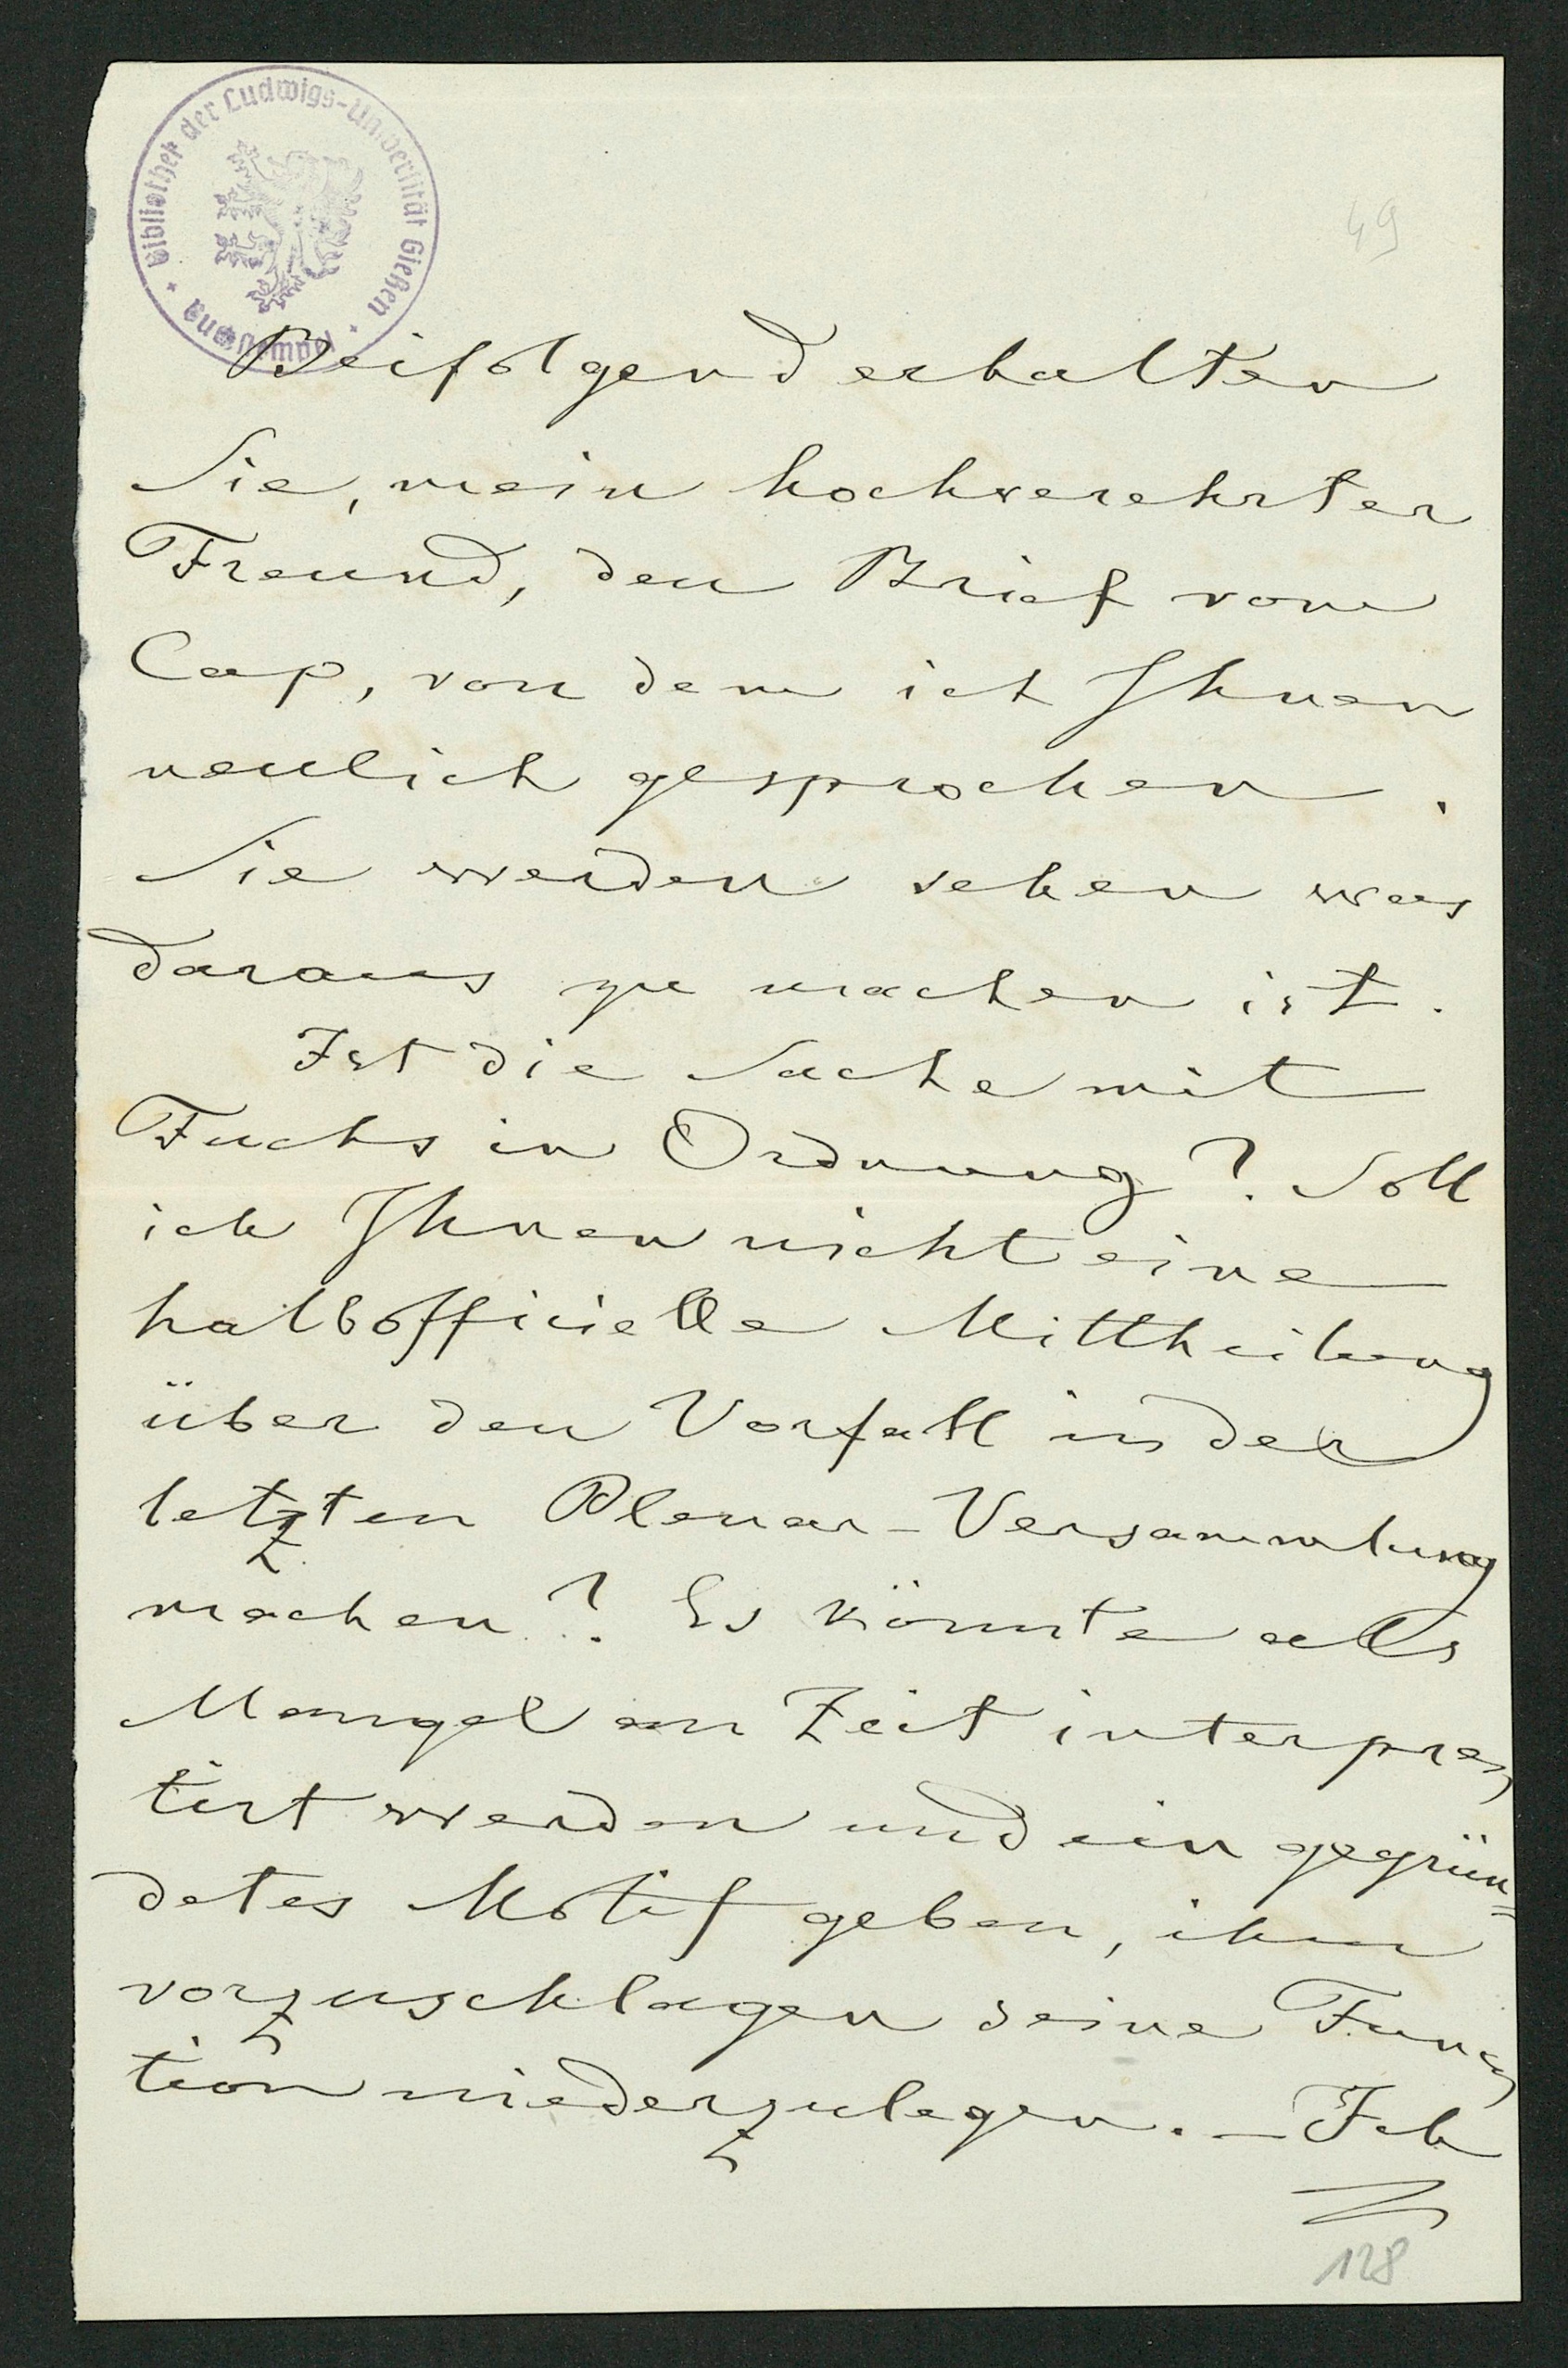 Bibliothek der Ludwigs-Universität Gießen
49
Beifolgend erhalten
Sie, mein hochverehrter
Freund, den Brief vom
Cap, von dem ich Ihnen
neulich gesprochen.
Sie werden sehen was
daraus zu machen ist.
Ist die Sache mit
Fuchs in Ordnung? Soll
ich Ihnen nicht eine
halbofficielle Mittheilung
über den Vorfall in der
letzten Plenar-Versammlung
machen? Es könnte als
Mangel an Zeit interpre-
tirt werden und ein gegrün=
detes Motif geben, ihm
vorzuschlagen seine Func-
tion niederzulegen. – Ich
128